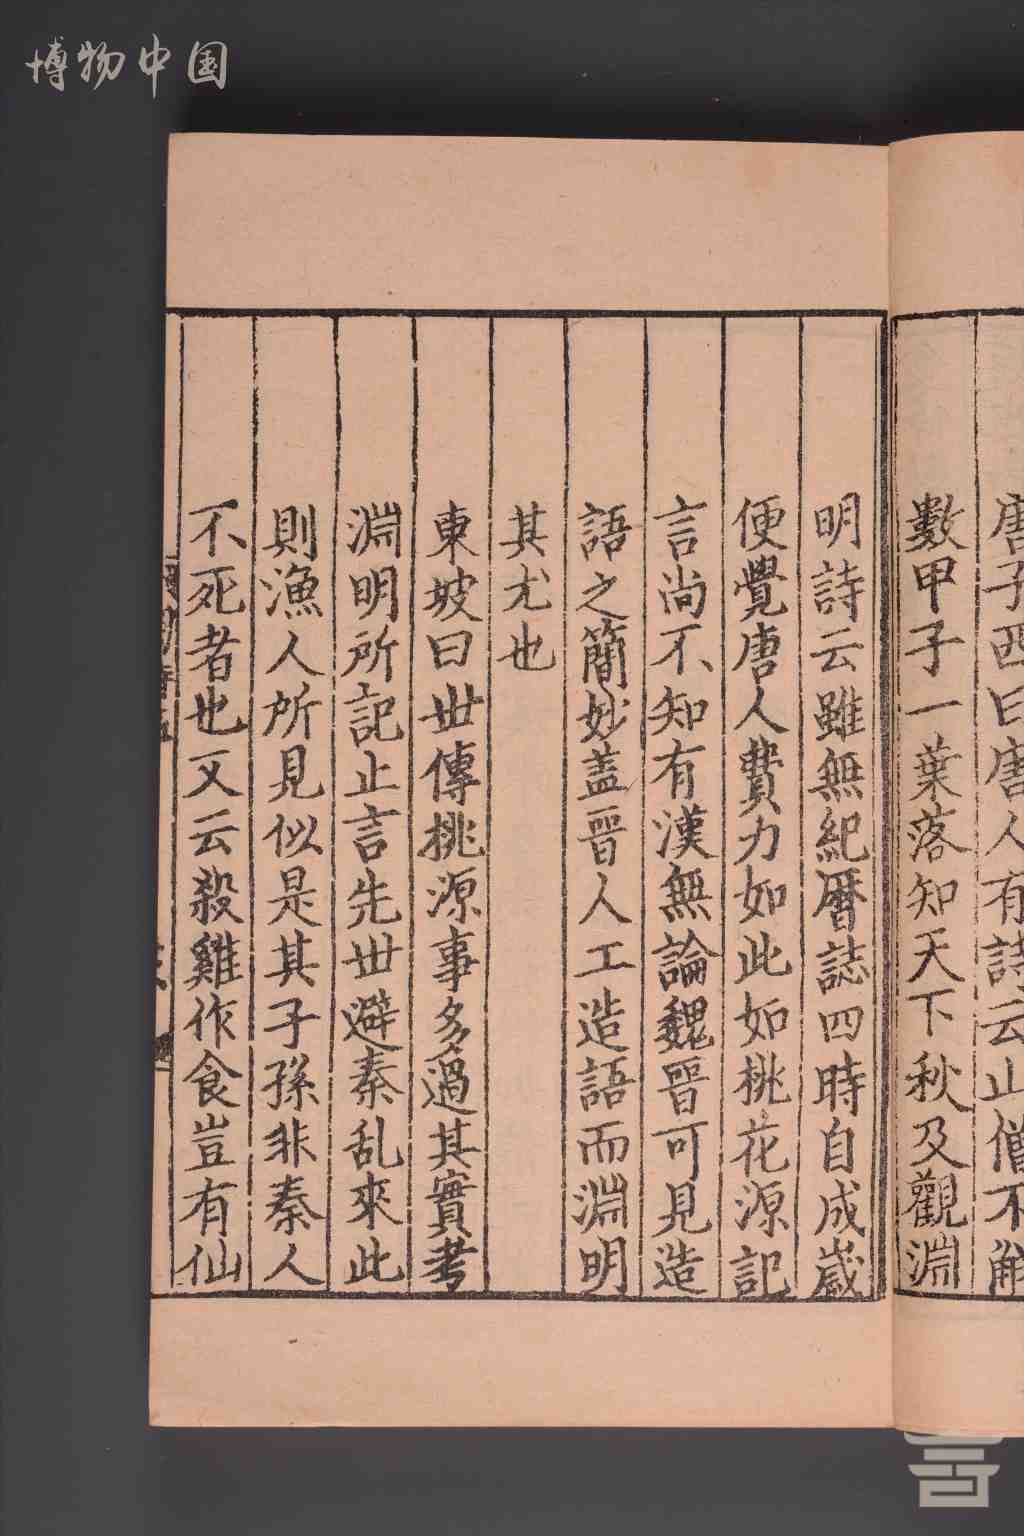 博物中国
唐子西曰唐人有詩云山僧不解
數甲子一葉落知天下秋及觀淵
明詩云雖無紀曆誌四時自成歲
便覺唐人費力如此如桃花源記
言尚不知有漢無論魏晉可見造
語之簡妙盖晉人工造語而淵明
其尤也
東坡曰世傳桃源事多過其實考
淵明所記止言先世避秦乱來此
則漁人所見似是其子孫非秦人
不死者也又云殺雞作食豈有仙